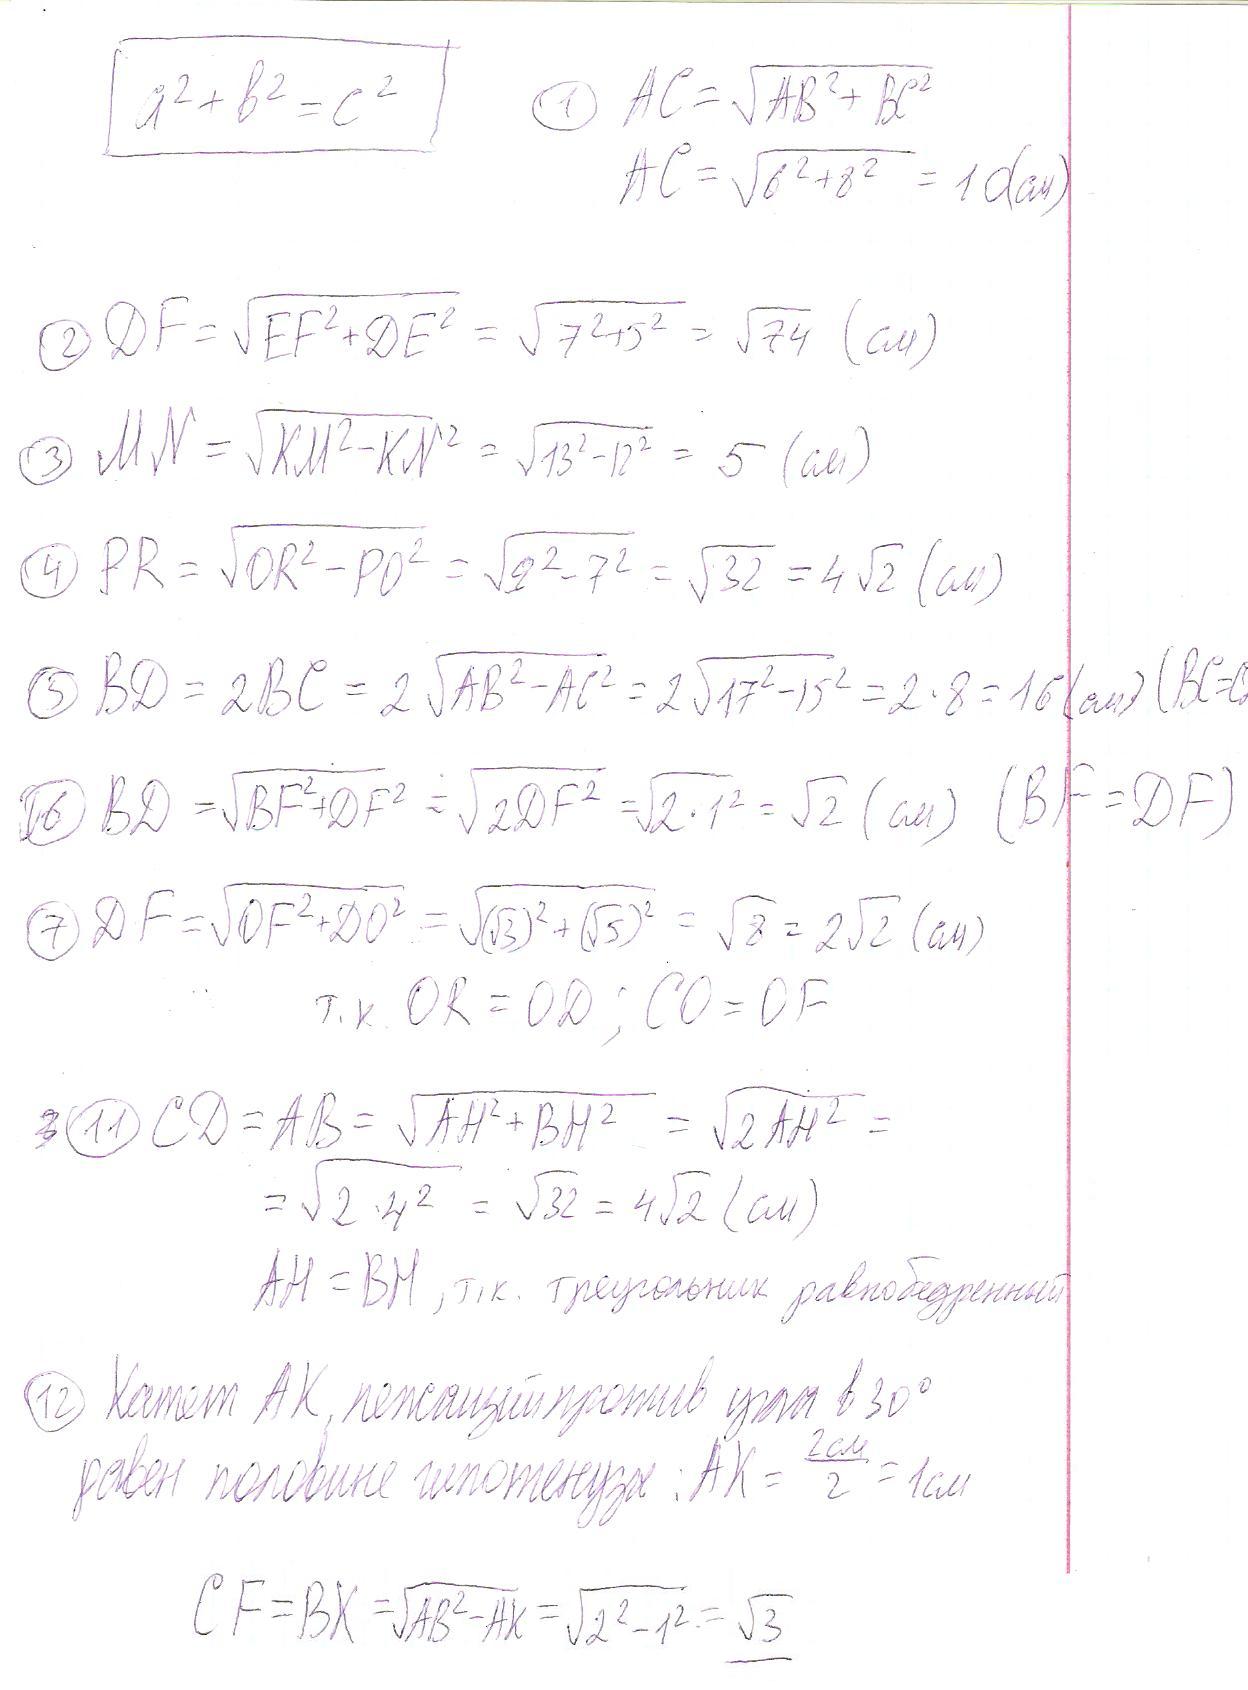 a² + b² = c²
① AC = √AB² + BC²
AC = √6² + 8² = 10(см)
② DF = √EF² + DE² = √7² + 5² = √74 (см)
③ MN = √KM² − KN² = √13² − 12² = 5 (см)
④ PR = √OR² − PO² = √9² − 7² = √32 = 4√2 (см)
⑤ BD = 2BC = 2√AB² − AC² = 2√17² − 15² = 2·8 = 16 (см) (BC=C
⑥ BD = √BF² + DF² = √2DF² = √2·1² = √2 (см) (BF = DF)
⑦ DF = √OF² + DO² = √(√3)² + (√5)² = √8 = 2√2 (см)
т.к. OR = OD; CO = OF
⑪ CD = AB = √AH² + BH² = √2AH² =
= √2·4² = √32 = 4√2 (см)
AH = BH, т.к. треугольник равнобедренный
⑫ Катет AK, лежащий против угла в 30°
равен половине гипотенузы: AK = 2см/2 = 1см
CF = BK = √AB² − AK = √2² − 1² = √3